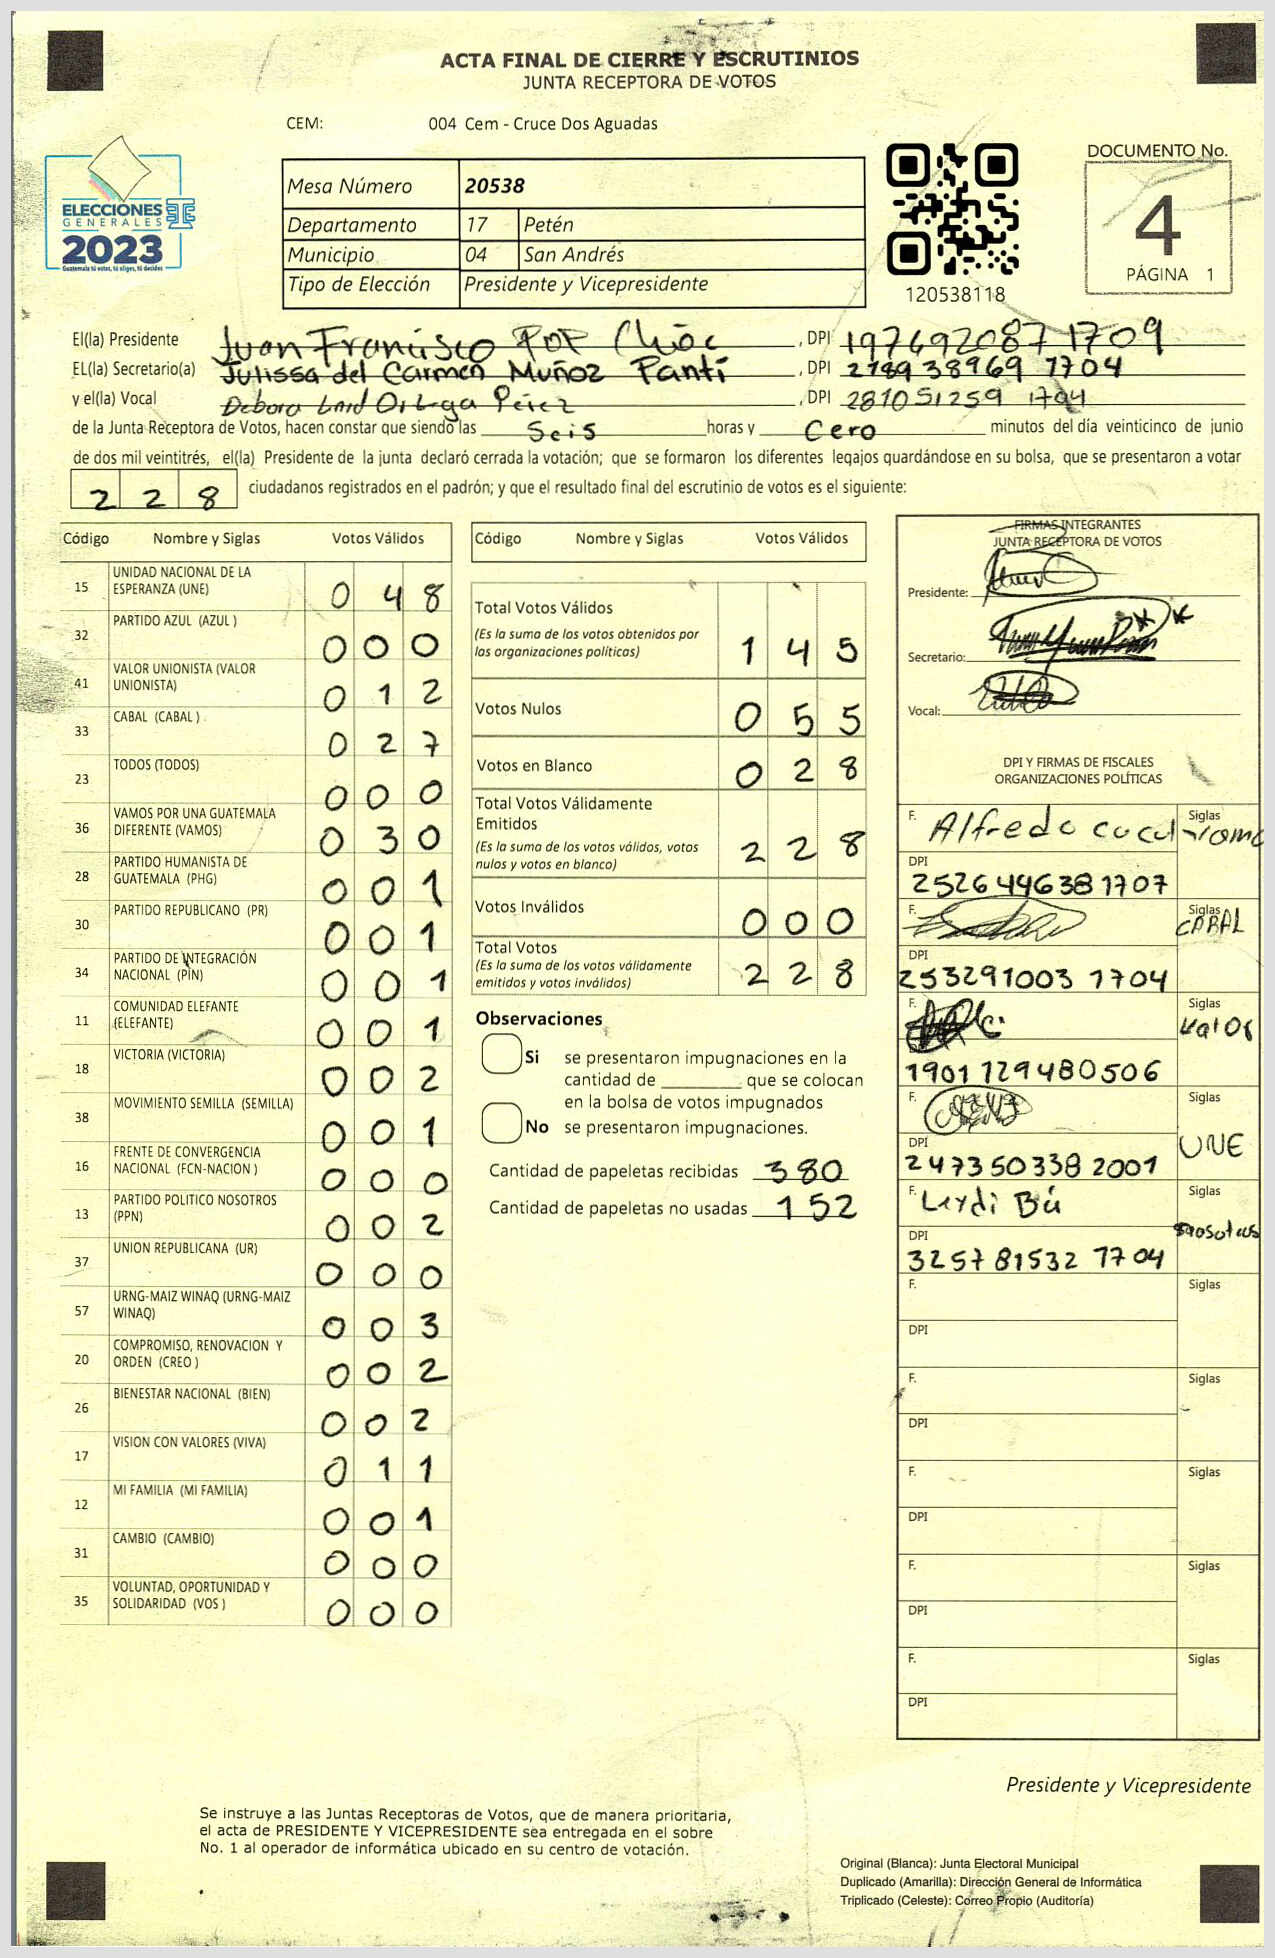 ACTA FINAL DE CIERRE Y ESCRUTINIOS
JUNTA RECEPTORA DE VOTOS
CEM: 004 Cem - Cruce Dos Aguadas
ELECCIONES
GENERALES
2023
Guatemala tú votas, tú eliges, tú decides
Mesa Número 20538
Departamento 17 Petén
Municipio 04 San Andrés
Tipo de Elección Presidente y Vicepresidente
120538118
DOCUMENTO No.
4
PÁGINA 1
El(la) Presidente Juan Francisco POP Chóc , DPI 197692087 1709
EL(la) Secretario(a) Julissa del Carmen Muñoz Pantí , DPI 218938969 1704
y el(la) Vocal Debora Ortega Pérez , DPI 281051259 1704
de la Junta Receptora de Votos, hacen constar que siendo las Seis horas y Cero minutos del día veinticinco de junio
de dos mil veintitrés, el(la) Presidente de la junta declaró cerrada la votación; que se formaron los diferentes legajos guardándose en su bolsa, que se presentaron a votar
2 2 8 ciudadanos registrados en el padrón; y que el resultado final del escrutinio de votos es el siguiente:
Código Nombre y Siglas Votos Válidos
15 UNIDAD NACIONAL DE LA
ESPERANZA (UNE) 0 4 8
32 PARTIDO AZUL (AZUL ) 0 0 0
41 VALOR UNIONISTA (VALOR
UNIONISTA) 0 1 2
33 CABAL (CABAL ) 0 2 7
23 TODOS (TODOS) 0 0 0
36 VAMOS POR UNA GUATEMALA
DIFERENTE (VAMOS) 0 3 0
28 PARTIDO HUMANISTA DE
GUATEMALA (PHG) 0 0 1
30 PARTIDO REPUBLICANO (PR) 0 0 1
34 PARTIDO DE INTEGRACIÓN
NACIONAL (PIN) 0 0 1
11 COMUNIDAD ELEFANTE
(ELEFANTE) 0 0 1
18 VICTORIA (VICTORIA) 0 0 2
38 MOVIMIENTO SEMILLA (SEMILLA) 0 0 1
16 FRENTE DE CONVERGENCIA
NACIONAL (FCN-NACION ) 0 0 0
13 PARTIDO POLITICO NOSOTROS
(PPN) 0 0 2
37 UNION REPUBLICANA (UR) 0 0 0
57 URNG-MAIZ WINAQ (URNG-MAIZ
WINAQ) 0 0 3
20 COMPROMISO, RENOVACION Y
ORDEN (CREO ) 0 0 2
26 BIENESTAR NACIONAL (BIEN) 0 0 2
17 VISION CON VALORES (VIVA) 0 1 1
12 MI FAMILIA (MI FAMILIA) 0 0 1
31 CAMBIO (CAMBIO) 0 0 0
35 VOLUNTAD, OPORTUNIDAD Y
SOLIDARIDAD (VOS ) 0 0 0
Código Nombre y Siglas Votos Válidos
Total Votos Válidos
(Es la suma de los votos obtenidos por
las organizaciones políticas) 1 4 5
Votos Nulos 0 5 5
Votos en Blanco 0 2 8
Total Votos Válidamente
Emitidos
(Es la suma de los votos válidos, votos
nulos y votos en blanco) 2 2 8
Votos Inválidos 0 0 0
Total Votos
(Es la suma de los votos válidamente
emitidos y votos inválidos) 2 2 8
Observaciones
Si se presentaron impugnaciones en la
cantidad de ________ que se colocan
en la bolsa de votos impugnados
No se presentaron impugnaciones.
Cantidad de papeletas recibidas 380
Cantidad de papeletas no usadas 152
FIRMAS INTEGRANTES
JUNTA RECEPTORA DE VOTOS
Presidente:
Secretario:
Vocal:
DPI Y FIRMAS DE FISCALES
ORGANIZACIONES POLÍTICAS
F. Alfredo cucul Siglas
DPI
252644638 1707
F. Siglas CABAL
DPI
253291003 1704
F. Siglas Valor
1901 129480506
F. Siglas UNE
DPI
247350338 2001
F. Leydi Bú Siglas
DPI
325781532 1704
F. Siglas
DPI
F. Siglas
DPI
F. Siglas
DPI
F. Siglas
DPI
F. Siglas
DPI
Presidente y Vicepresidente
Se instruye a las Juntas Receptoras de Votos, que de manera prioritaria,
el acta de PRESIDENTE Y VICEPRESIDENTE sea entregada en el sobre
No. 1 al operador de informática ubicado en su centro de votación.
Original (Blanca): Junta Electoral Municipal
Duplicado (Amarilla): Dirección General de Informática
Triplicado (Celeste): Correo Propio (Auditoría)